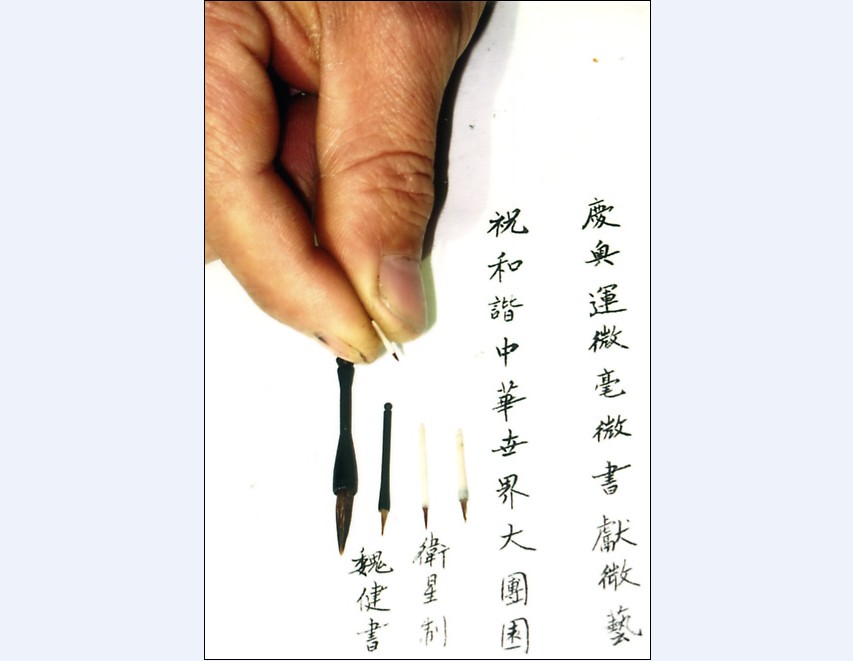 慶奥運微毫微書獻微藝
祝和諧中華世界大團圓
衛星制
魏健書